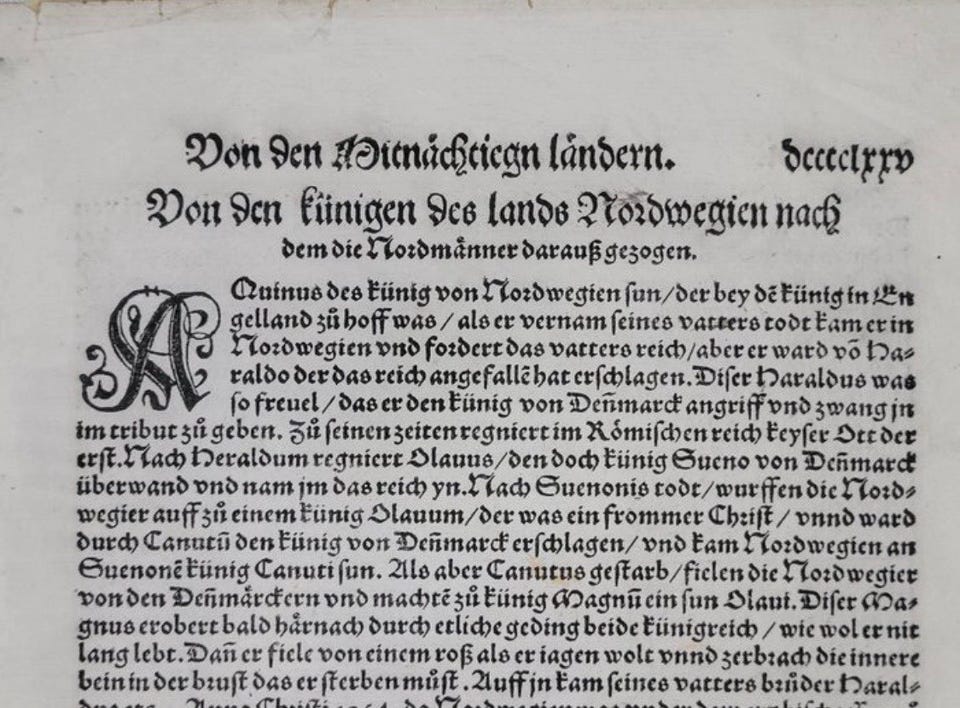 Von den Mitnåchtiegn låndern. dcccclxxv
Von den künigen des lands Nordwegien nach
dem die Nordmånner darauß gezogen.
AQuinus des künig von Nordwegien sun/der bey dē künig in En
gelland zů hoff was/als er vernam seines vatters todt kam er in
Nordwegien vnd fordert das vatters reich/aber er ward võ Ha⸗
raldo der das reich angefallē hat erschlagen. Diser Haraldus was
so freuel/das er den künig von Deñmarck angriff vnd zwang jn
im tribut zů geben. Zů seinen zeiten regniert im Rômischen reich keyser Ott der
erst. Nach Heraldum regniert Olauus/den doch künig Sueno von Deñmarck
überwand vnd nam jm das reich yn. Nach Suenonis todt/wurffen die Nord⸗
wegier auff zů einem künig Olauum/der was ein frommer Christ/vnnd ward
durch Canutū den künig von Deñmarck erschlagen/vnd kam Nordwegien an
Suenonē künig Canuti sun. Als aber Canutus gestarb/fielen die Nordwegier
von den Deñmårckern vnd machtē zů künig Magnū ein sun Olaui. Diser Ma⸗
gnus erobert bald hårnach durch etliche geding beide künigreich/wie wol er nit
lang lebt. Dañ er fiele von einem roß als er iagen wolt vnnd zerbrach die innere
bein in der brust das er sterben můst. Auff jn kam seines vatters brůder Haral⸗